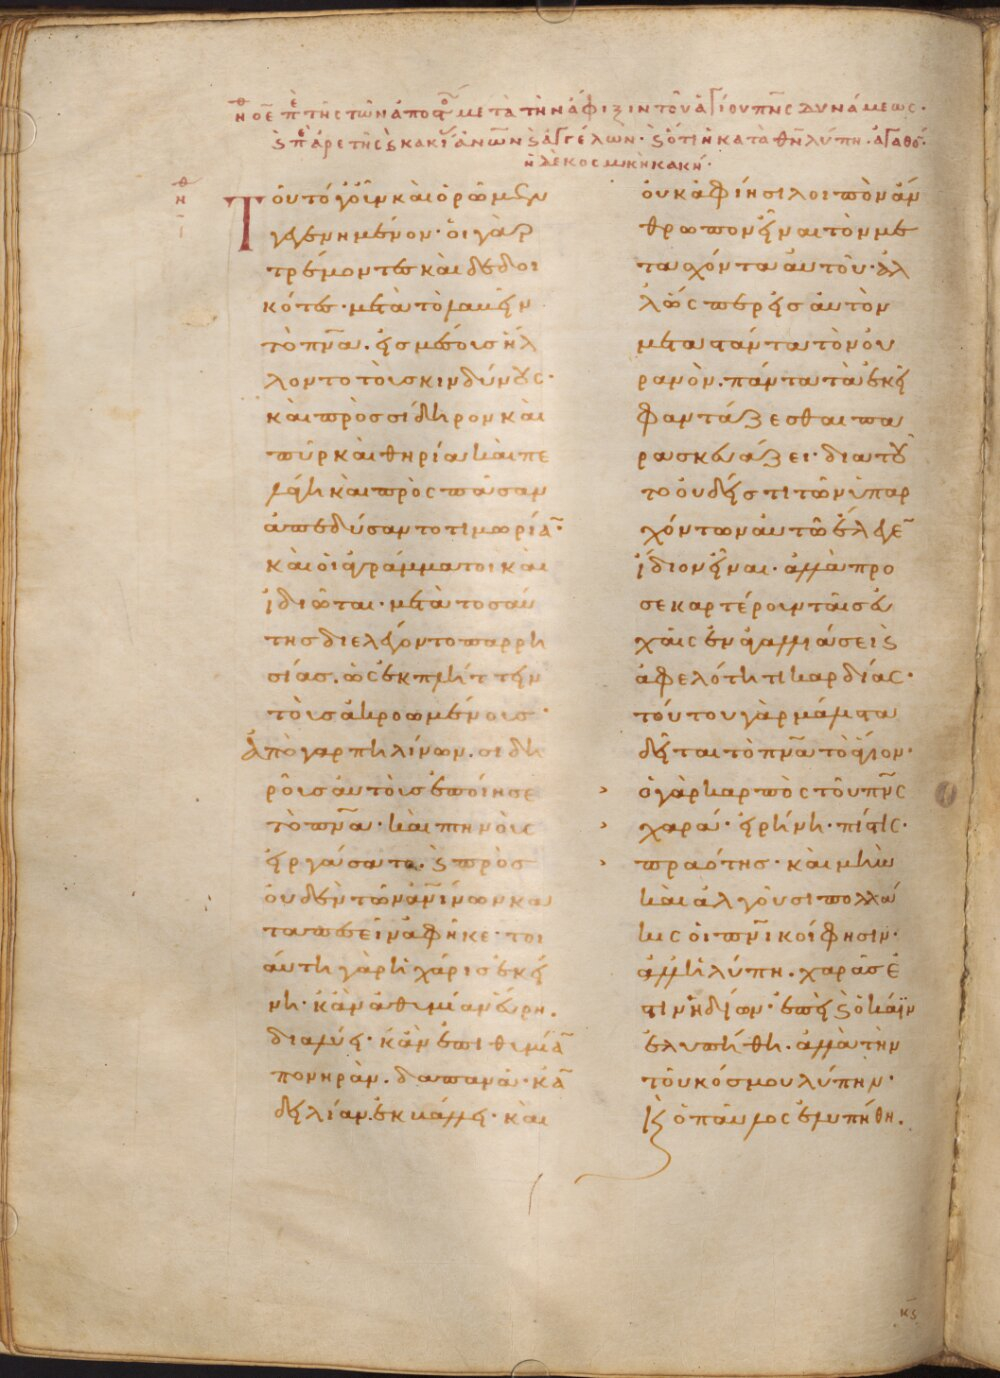 θ η ὁ ε̄ περὶ τῆς τῶν ἀποστ μετὰ τὴν ἄφιξιν τοῦ ἁγίου πν̅ς δυνάμεως·
ϗ περὶ ἀρετῆς ϗ κακίας ἀνω̅ν ϗ ἀγγέλων· ϗ ὅτι ἡ κατὰ θν̅ λύπη ἀγαθο·
ἡ δὲ κοσμικὴ κακή·
θ
η
Τοῦτο γοῦν καὶ ὁρῶμεν
γεγενημένον· οἱ γὰρ
τρέμοντες καὶ δεδοι
κότες· μετὰ τὸ λαβεῖν
τὸ πν̅α. εἰς μέσους ἥλ
λοντο τοὺς κινδύνους·
καὶ πρὸς σίδηρον καὶ
πῦρ καὶ θηρία καὶ πε
λάγη καὶ πρὸς πᾶσαν
ἀπεδύσαντο τιμωρία̅·
καὶ οἱ ἀγράμματοι καὶ
ἰδιῶται· μετὰ τοσαύ
της διελέγοντο παρρη
σίας. ὡς ἐκπλήττειν
τοὺς ἀκροωμένους·
Ἀπὸ γὰρ πηλίνων. σιδη
ροῦς αὐτοὺς ἐποίησε
τὸ πν̅α· καὶ πτηνοὺς
εἰργάσατο. ϗ πρὸς
οὐδὲν τῶν ἀν̅ίνων κα
ταπεσεῖν ἀφῆκε· τοι
αύτη γὰρ ἡ χάρις ἐκεί
νη· κἂν ἀθυμίαν εὕρη.
διαλύει· κἂν ἐπιθυμία̅
πονηρὰν. δαπανᾶ· κα̅
δειλίαν. ἐκβάλλει· καὶ
οὐκ ἀφίησι λοιπὸν ἄν
θρωπον εἶναι τὸν με
τασχόντα αὐτοῦ· ἀλ
λ' ὥσπερ εἰς αὐτὸν
μεταστάντα τὸν οὐ
ρανὸν. πάντα τὰ ἐκεῖ
φαντάζεσθαι πα
ρασκευάζει· διὰ τοῦ
το οὐδείς τι τῶν ὑπαρ
χόντων αὐτῶ ἔλεγε̅
ἴδιον εἶναι· ἀλλὰ προ
σεκαρτέρουν ταῖς εὐ
χαῖς ἐν ἀγαλλιάσει ϗ
ἀφελότητι καρδίας·
τούτου γὰρ μάλιστα
δεῖται τὸ πν̅α τὸ ἅγιον·
› ὁ γὰρ καρπὸς τοῦ πν̅ς
› χαρά· εἰρήνη· πίστις·
› πραότης· καὶ μὴν
καὶ ἀλγοῦσι πολλά
κις οἱ πν̅ικοί φησιν·
ἀλλ' ἡ λύπη. χαρᾶς ἐ
στιν ἡδίων· ἐπεὶ ϗ ὁ κάϊν
ἐλυπήθη. ἀλλὰ τὴν
τοῦ κόσμου λύπην·
ϗ ὁ παῦλος ἐλυπήθη.
κϛ